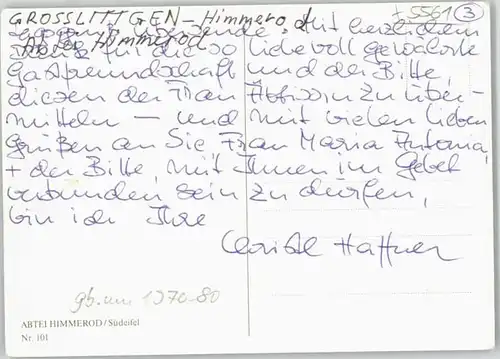 GROSSLITTGEN - Himmerod
+ 5561 3
Abtei Himmerod
Mit herzlichem
Dank für die so liebevoll gewährte
Gastfreundschaft und der Bitte,
diesen der Frau Äbtissin zu über-
mitteln – und mit vielen lieben
Grüßen an Sie Frau Maria Antonia,
+ der Bitte, mit Ihnen im Gebet
verbunden sein zu dürfen,
bin ich Ihre
Haffner
gb. um 1970-80
ABTEI HIMMEROD/Südeifel
Nr. 101